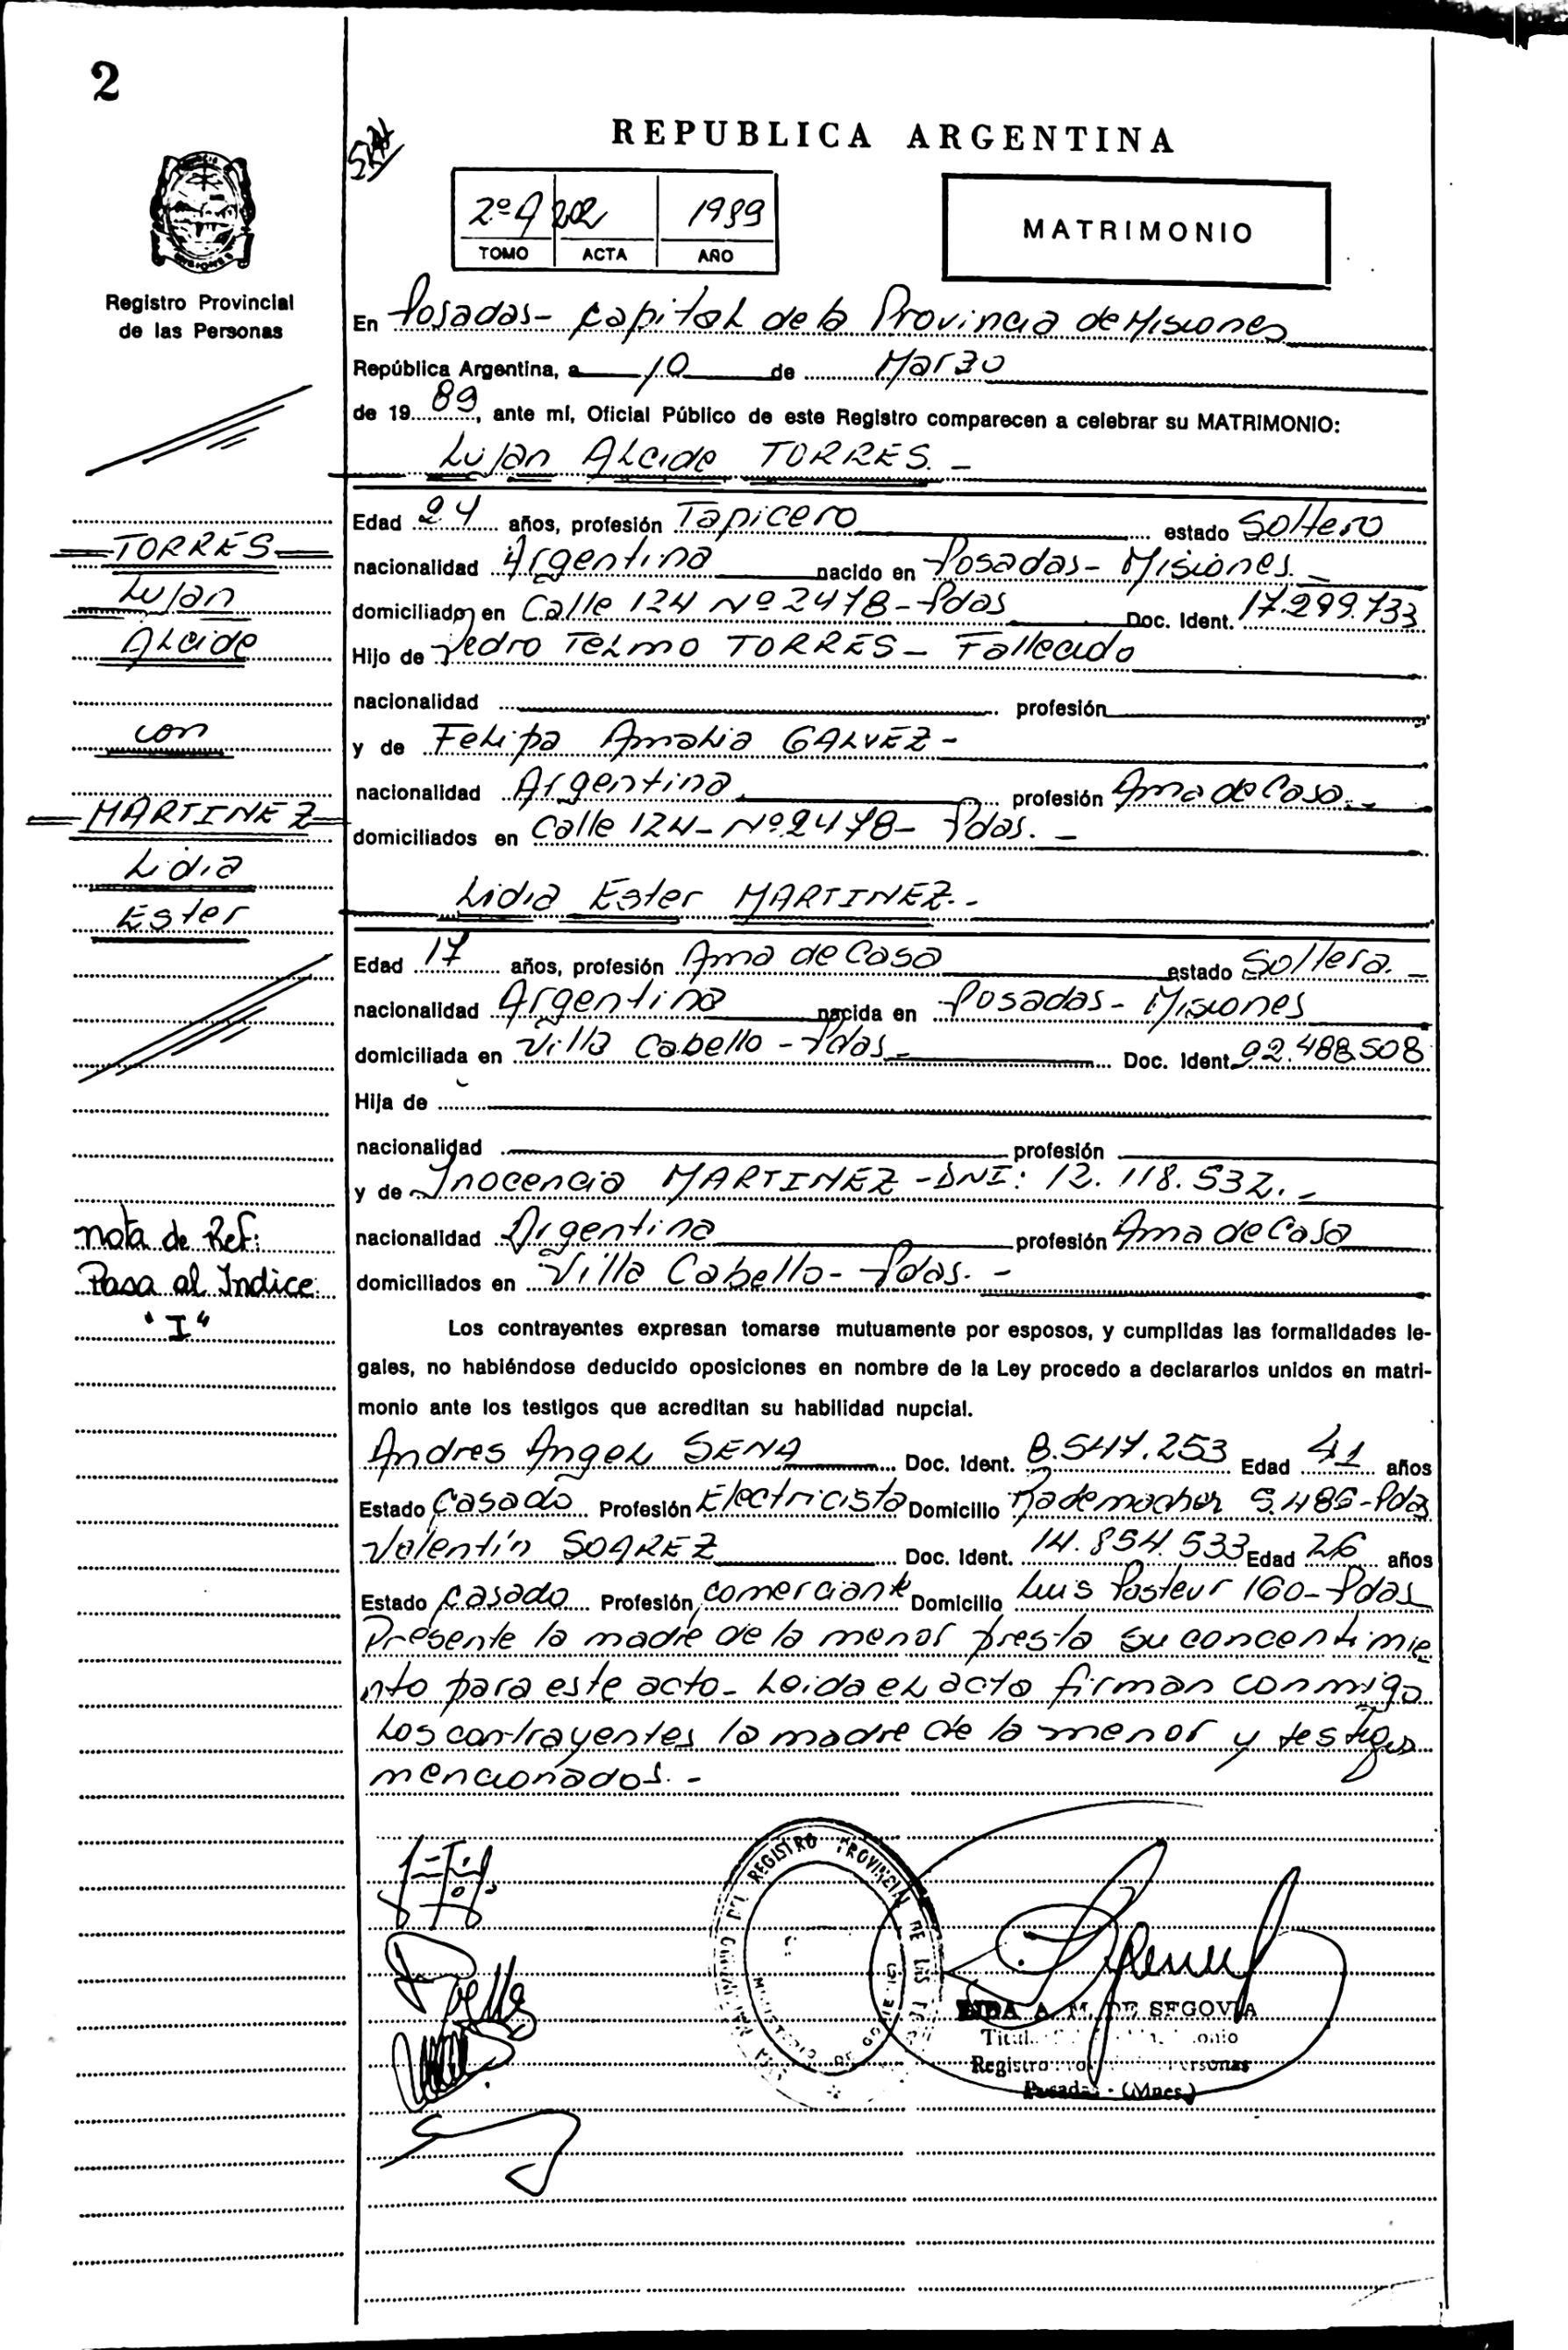 2
REPUBLICA ARGENTINA
2º A 202 1989
TOMO ACTA AÑO
MATRIMONIO
Registro Provincial
de las Personas
En Posadas- Capital de la Provincia de Misiones
República Argentina, a 10 de Marzo
de 19 89, ante mí, Oficial Público de este Registro comparecen a celebrar su MATRIMONIO:
Lujan Alcide TORRES.-
Edad 24 años, profesión Tapicero estado Soltero
nacionalidad Argentina nacido en Posadas- Misiones.-
domiciliado en Calle 124 Nº 2478-Pdas Doc. Ident. 17.299.733
Hijo de Pedro Telmo TORRES- Fallecido
nacionalidad profesión
y de Felipa Amalia GALVEZ-
nacionalidad Argentina profesión Ama de Casa.-
domiciliados en Calle 124- Nº 2478- Pdas.-
Lidia Ester MARTINEZ.-
Edad 17 años, profesión Ama de Casa estado Soltera.-
nacionalidad Argentina nacida en Posadas- Misiones
domiciliada en Villa Cabello-Pdas- Doc. Ident. 92.488.508
Hija de
nacionalidad profesión
y de Inocencia MARTINEZ-DNI: 12.118.532.-
nacionalidad Argentina profesión Ama de Casa
domiciliados en Villa Cabello- Pdas.-
Los contrayentes expresan tomarse mutuamente por esposos, y cumplidas las formalidades le-
gales, no habiéndose deducido oposiciones en nombre de la Ley procedo a declararlos unidos en matri-
monio ante los testigos que acreditan su habilidad nupcial.
Andres Angel SENA Doc. Ident. 8.547.253 Edad 41 años
Estado Casado Profesión Electricista Domicilio Rademacher 5.486-Pdas
Valentín SOAREZ Doc. Ident. 14.854.533 Edad 26 años
Estado Casado Profesión comerciante Domicilio Luis Pasteur 160-Pdas
Presente la madre de la menor presta su concentimie
nto para este acto- Leida el acta firman conmigo
los contrayentes la madre de la menor y testigos
mencionados.-
TORRES
Lujan
Alcide
con
MARTINEZ
Lidia
Ester
nota de Ref:
Pasa al Indice
"I"
DEL REGISTRO PROVINCIAL DE LAS
MINISTERIO DE GOBIERNO
A. M. DE SEGOVIA
Registro
Posadas - (Mnes.)